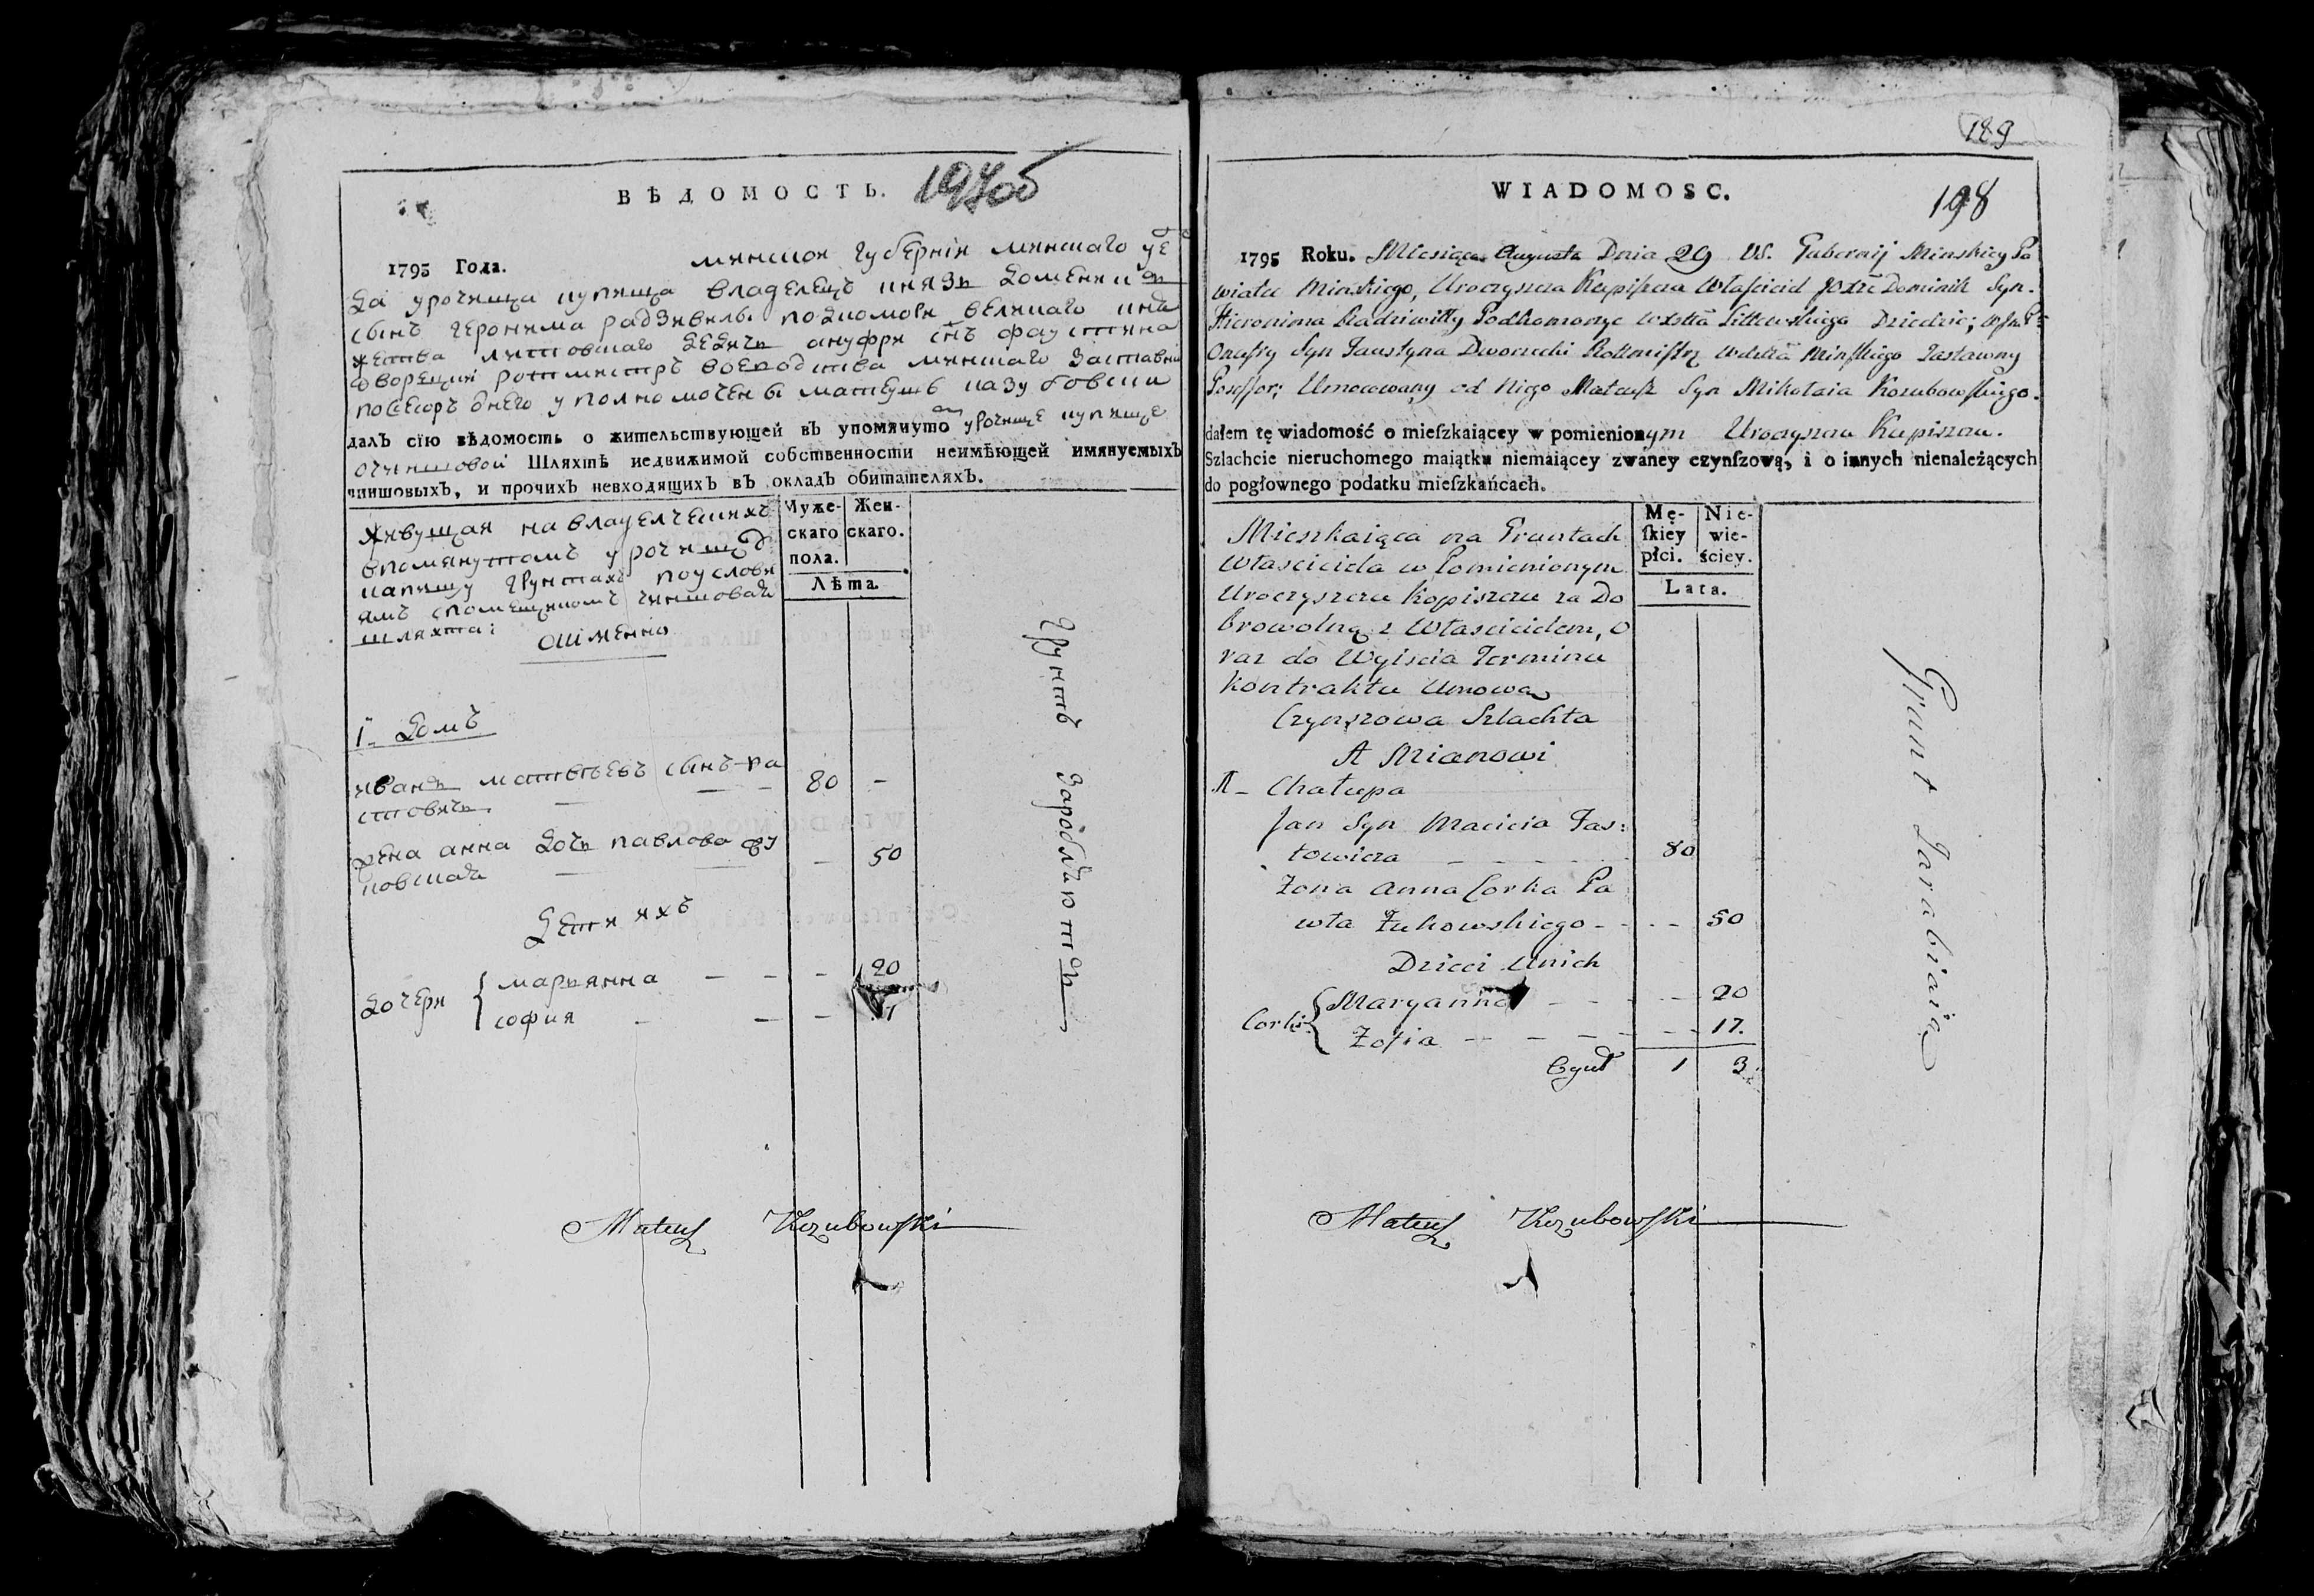 ВѢДОМОСТЬ. 197об
1795 Года. минской губерніи минскаго уе
зда урочища купища владелецъ князь доминикъ
сынъ геронима радзивилъ подкоморы великаго кня
жества литовскаго дедичь ануфри снъ фаустина
дворецки ротмистръ воеводства минскаго заставни
посесоръ онего уполномочены матеушъ казубовски
далъ сїю вѣдомость о жительствующей въ упомянуто урочище купище
очиншовой Шляхтѣ недвижимой собственности неимѣющей имянуемыхъ
чиншовыхъ, и прочихъ невходящихъ въ окладъ обитателяхъ.
живущая навладелческихъ
впомянутомъ урочищѣ
купищу грунтахъ поуслови
ямъ спомещикомъ чиншовая
шляхта:
аимѣнно
Муже- Жен-
скаго скаго.
пола.
Лѣта.
1. домъ
иванъ матвѣевъ сынъ 80 -
стовичь
жена анна дочь павлова - 50
ковская
Детиихъ
дочери { марьянна - - - 20
софия - - - 17
грунтъ зароблюютъ
Mateusz Kozubowski
189
WIADOMOSC. 198
1795 Roku. Miesiąca Augusta Dnia 29 VS. Gubernij Minskiey Po
wiatu Minskiego, Uroczyszcza Kupiszcza Własciciel JOXże Dominik Syn
Hieronima Radziwiłły Podkomorzyc WXstta Littewskiego Dziedzic;
Onufry Syn Faustyna Dworzecki Rottmistrz Wdztta Minskiego Zastawny
Possessor; Umocowany od Niego Mateusz Syn Mikołaia Kozubowskiego.
dałem tę wiadomość o mieſzkaiącey w pomienionym Uroczyszczu Kupiszczu.
Szlachcie nieruchomego maiątku niemaiącey zwaney czynſzową, i o innych nienależących
do pogłownego podatku mieſzkańcach.
Mieszkaiąca na Gruntach
Własciciela w Pomienionym
Uroczyszczu Kopiszczu za Do
browolną z Własciicielem, o
raz do Wyiscia Terminu
Kontraktu Umową
Czynszowa Szlachta
A Mianowi
Mę- Nie-
ſkiey wie-
płci. ściey.
Lata.
1 - Chałupa
Jan Syn Macieia Fas:
towicza - - - - 80
Zona Anna Corka Pa
wła Żukowskiego - - - - 50
Dzieci Unich
Corki { Maryanna - - - - 20
Zofia - - - - - 17.
Oguł 1 3.
Grunt Zarabiaią
Mateusz Kozubowski